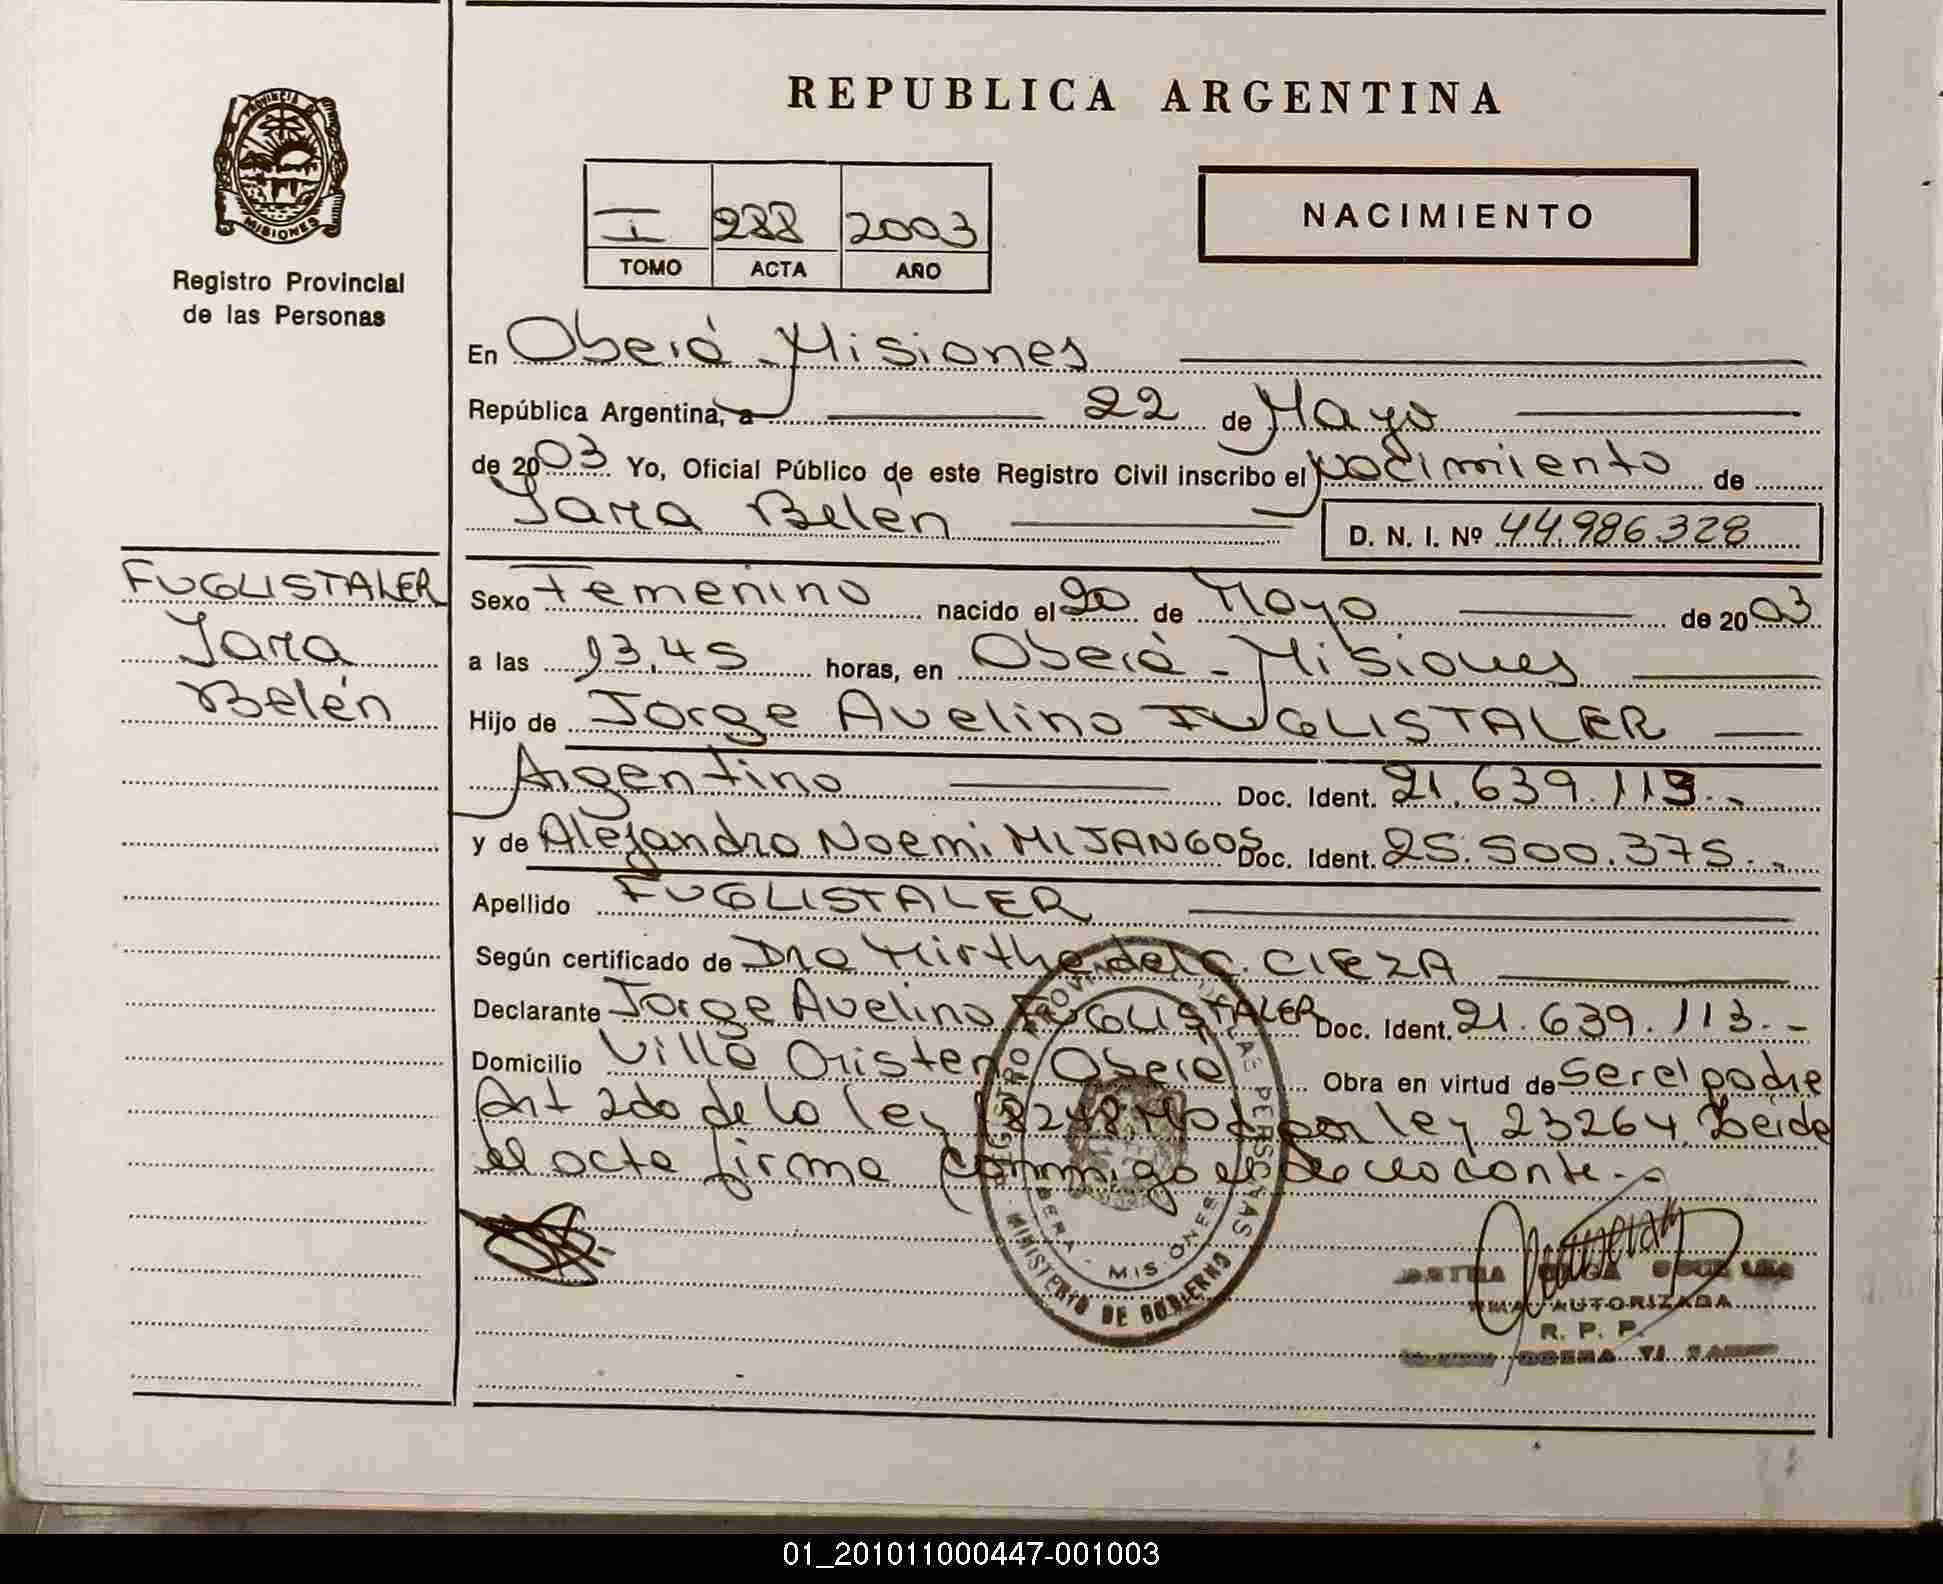 REPUBLICA ARGENTINA
PROVINCIA DE MISIONES
Registro Provincial
de las Personas
I 288 2003
TOMO ACTA AÑO
NACIMIENTO
En Oberá - Misiones
República Argentina, a 22 de Mayo
de 2003 Yo, Oficial Público de este Registro Civil inscribo el nacimiento de
Yara Belén
D. N. I. Nº 44.986.328
FUGLISTALER
Yara
Belén
Sexo Femenino nacido el 20 de Mayo de 2003
a las 13,45 horas, en Oberá - Misiones
Hijo de Jorge Avelino FUGLISTALER
Argentino Doc. Ident. 21.639.113.-
y de Alejandra Noemi MIJANGOS Doc. Ident. 25.500.375.-
Apellido FUGLISTALER
Según certificado de Dra Mirtha del C. CIEZA
Declarante Jorge Avelino FUGLISTALER Doc. Ident. 21.639.113.-
Domicilio Villa Oberá Obra en virtud de ser el padre
Art 2do de la ley 18248, Mod por ley 23264. Leida
el acta firma conmigo el declarante.-
REGISTRO PROVINCIAL DE LAS PERSONAS
OBERA - MISIONES
MINISTERIO DE GOBIERNO
AUTORIZADA
R. P. P.
01_201011000447-001003